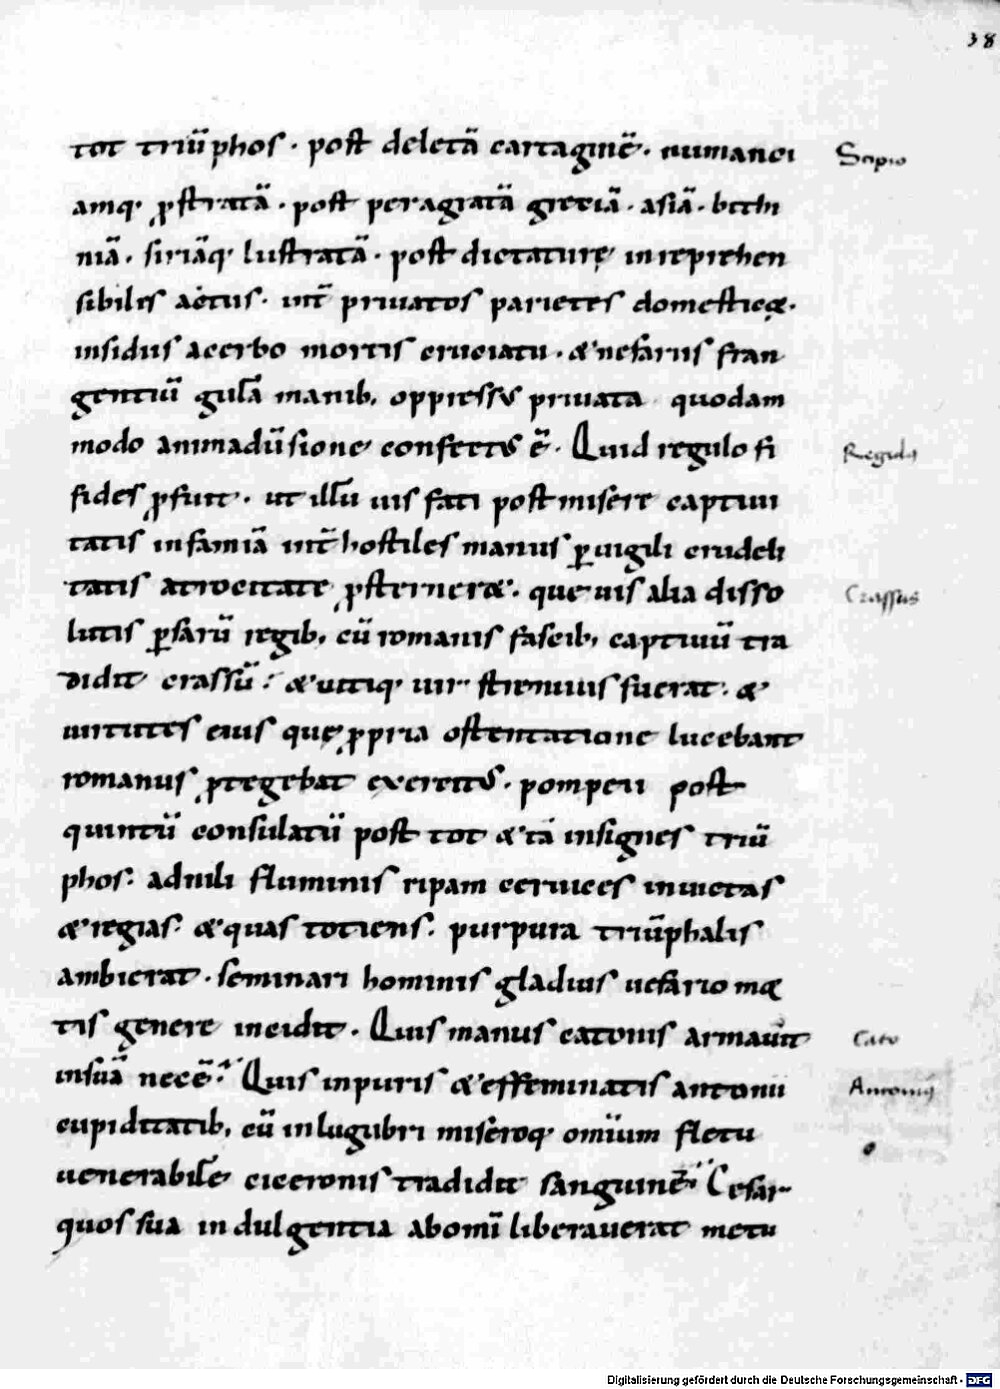 38
tot triu̅phos · post deleta̅ cartagine̅ · numanci Scipio
amq; ꝓstrata̅ · post peragrata̅ grecia̅ · asia̅ · bithi
nia̅ · siria̅q; lustrata̅ · post dictaturę inreprehen
sibilis actus · int̅ priuatos parietes domesticę ·
insidiis acerbo mortis cruciatu · & nefariis fran
gentiu̅ gula̅ manib; oppressus priuata quodam
modo animadu̅sione confectus e̅ · Quid regulo fi Regulus
fides ꝓfuit · ut illu̅ uis fati post misere captiui
tatis infamia̅ int̅ hostiles manus ꝑuigili crudeli
tatis atrocitate ꝓsterner& · que uis alia disso Crassus
lutis ꝑsaru̅ regib; cu̅ romanis fascib; captiuu̅ tra
didit crassu̅ · & utiq; uir strenuus fuerat · &
uirtutes eius quę ꝓpria ostentatione lucebant
romanus ꝓtegebat exercitus · pompeii post
quintu̅ consulatu̅ post tot & ta̅ insignes triu̅
phos · ad nili fluminis ripam ceruices inuictas
& regias · & quas totiens · purpura triu̅phalis
ambierat · seminari hominis gladius nefario mor
tis genere incidit · Quis manus catonis armauit Cato
in sua̅ nece̅ · Quis inpuris & effeminatis antonii Antonius
cupiditatib; cu̅ in lugubri miseroq; omniu̅m fletu
uenerabile̅ ciceronis tradidit sanguine̅ · Cesar
quos sua indulgentia abomi̅ liberauerat metu
Digitalisierung gefördert durch die Deutsche Forschungsgemeinschaft - DFG